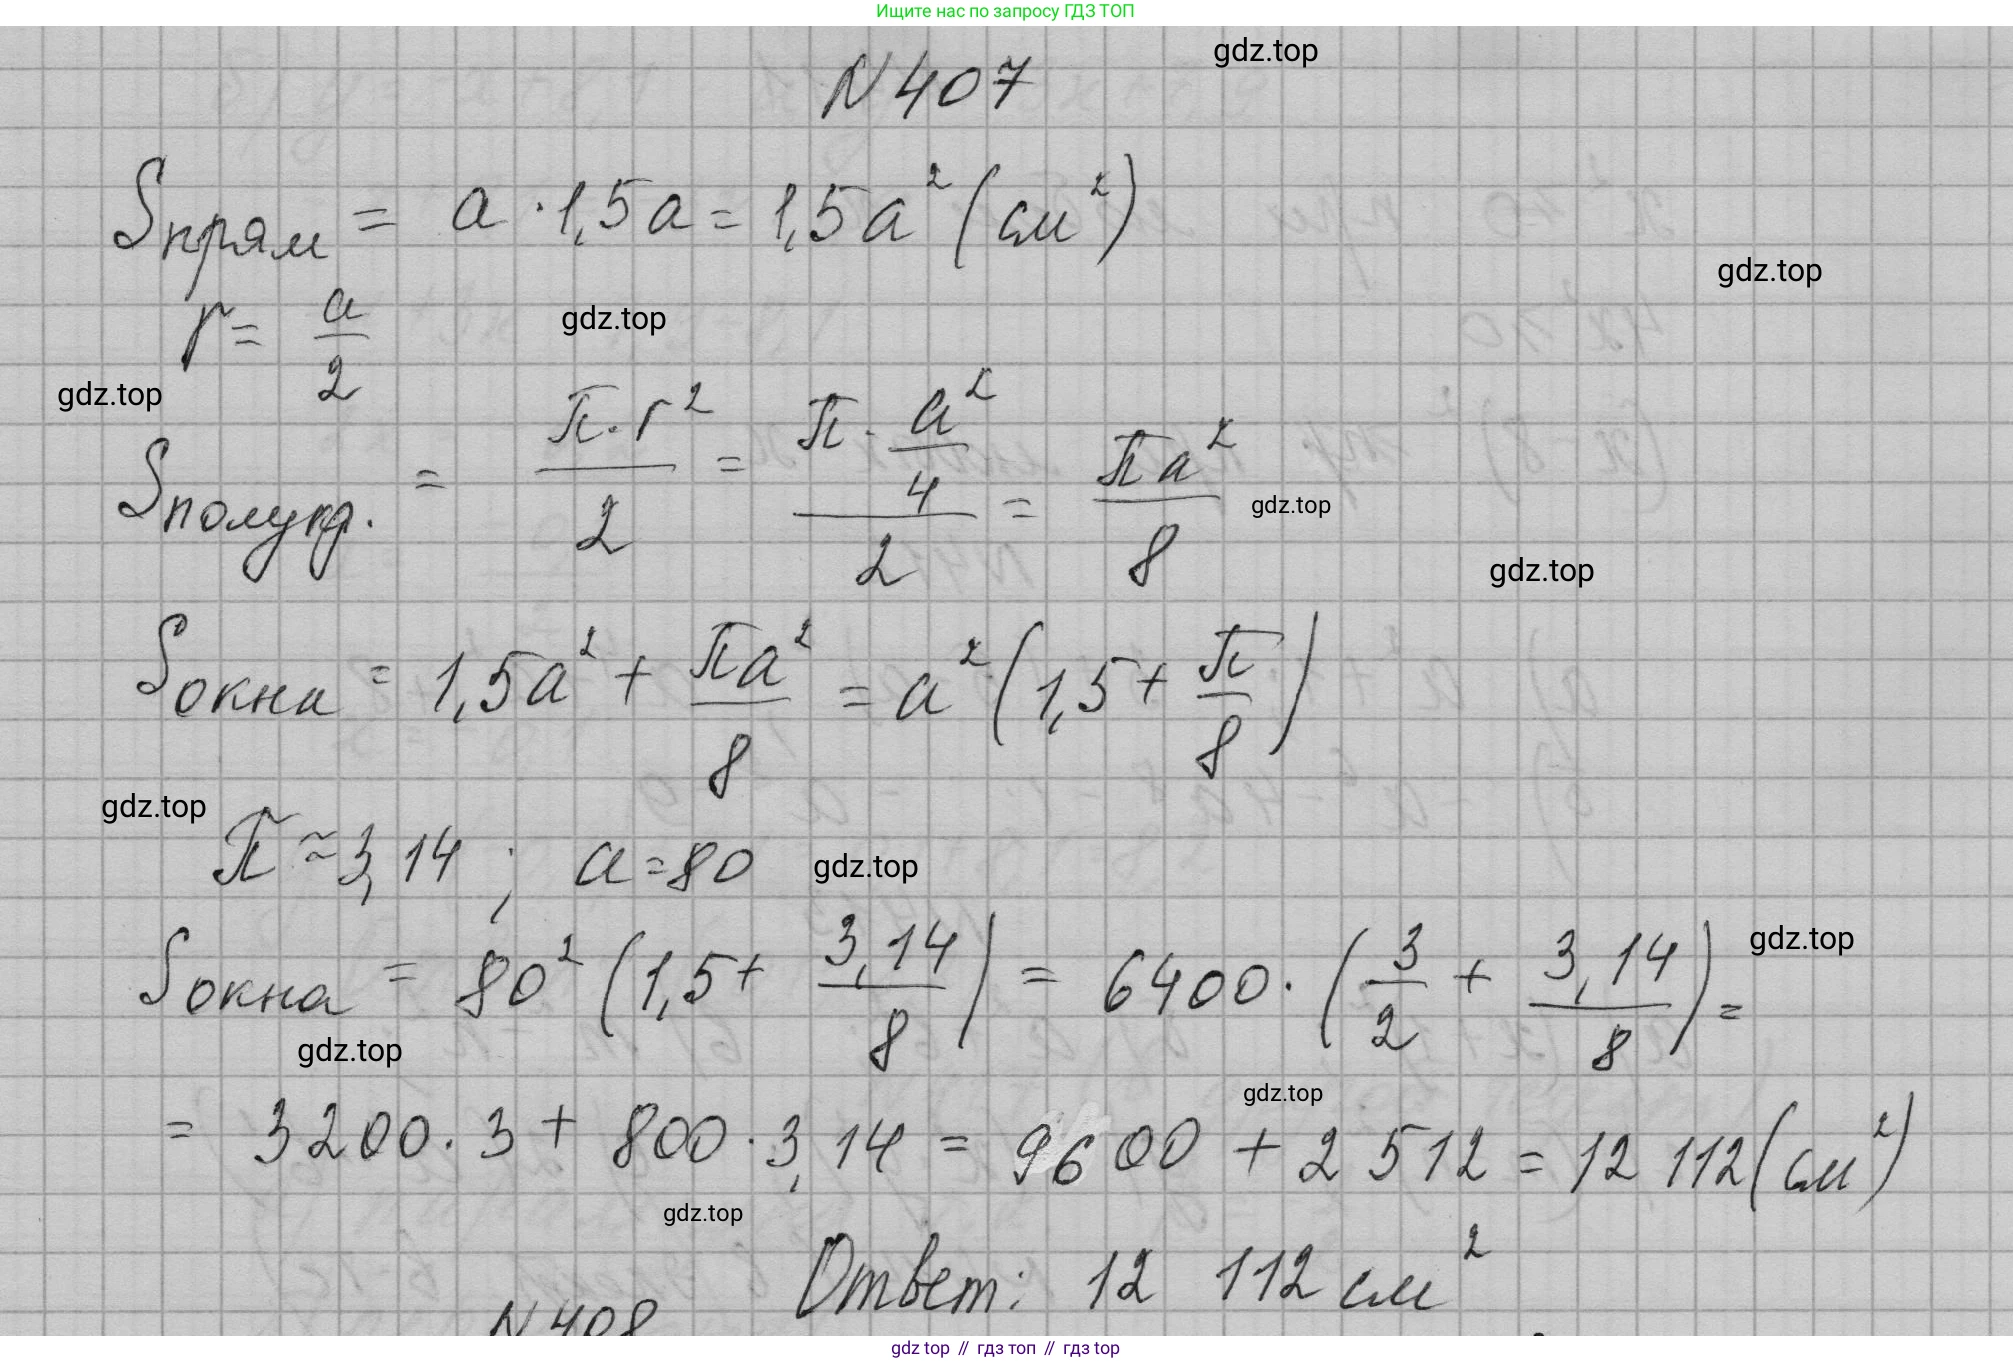 Ищите нас по запросу ГДЗ ТОП
gdz.top
N 407
Sпрям = a · 1,5a = 1,5a² (см²)
gdz.top
r = a/2
gdz.top
gdz.top
Sполукр. = π·r²/2 = (π·a²/4)/2 = πa²/8
gdz.top
gdz.top
Sокна = 1,5a² + πa²/8 = a²(1,5 + π/8)
gdz.top
π ≈ 3,14 ; a = 80
gdz.top
gdz.top
Sокна = 80² (1,5 + 3,14/8) = 6400 · (3/2 + 3,14/8) =
gdz.top
gdz.top
= 3200 · 3 + 800 · 3,14 = 9600 + 2 512 = 12 112 (см²)
gdz.top
Ответ: 12 112 см²
N 408
gdz top // гдз топ // gdz top